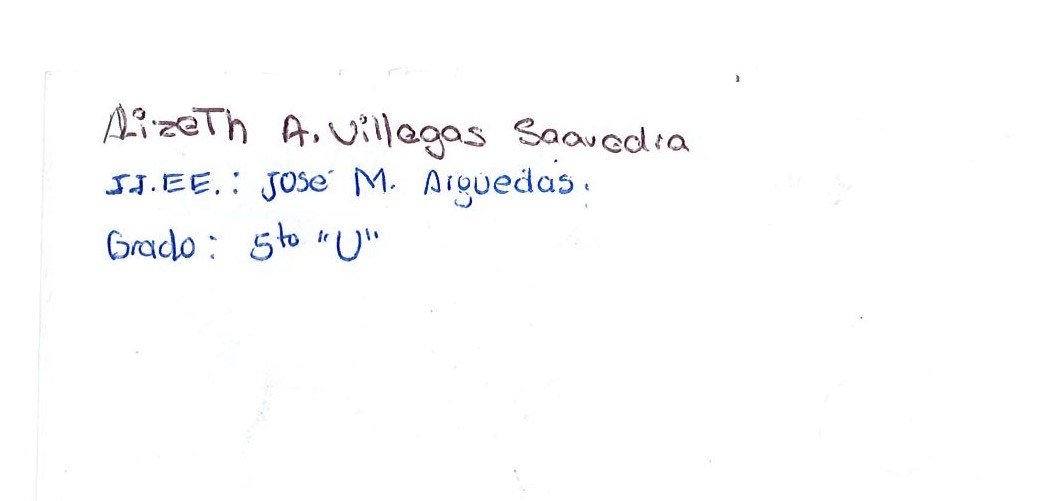 Lizeth A. Villegas Saavedra
II.EE.: José M. Arguedas.
Grado: 5to "U"